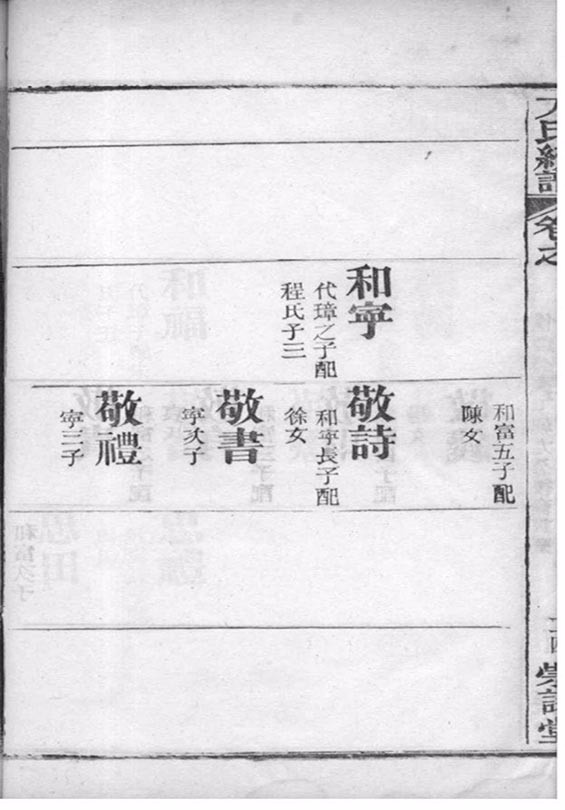 氏統譜
卷之
和寧
代璋之子配
程氏子三
和富五子配
陳女
敬詩
和寧長子配
徐女
敬書
寧次子
敬禮
寧三子